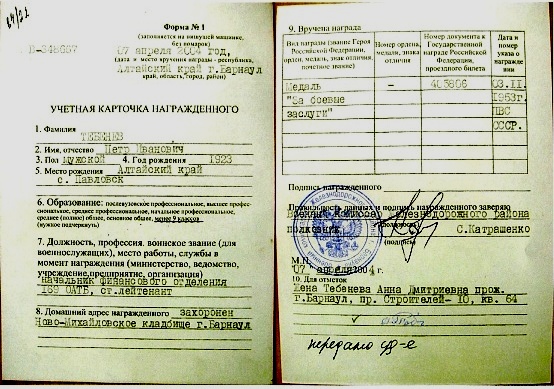 64/21
Форма № 1
(заполняется на пишущей машинке,
без помарок)
В-348667
07 апреля 2004 год,
(дата и место вручения награды - республика,
Алтайский край г.Барнаул
край, область, город, район)
УЧЕТНАЯ КАРТОЧКА НАГРАЖДЕННОГО
1. Фамилия
ТЕБЕНЕВ
2. Имя, отчество Петр Иванович
3. Пол мужской 4. Год рождения 1923
5. Место рождения Алтайский край
с. Павловск
6. Образование: послевузовское профессиональное, высшее профес-
сиональное, среднее профессиональное, начальное профессиональное,
среднее (полное) общее, основное общее, менее 9 классов
(нужное подчеркнуть)
7. Должность, профессия, воинское звание (для
военнослужащих), место работы, службы в
момент награждения (министерство, ведомство,
учреждение, предприятие, организация)
начальник финансового отделения
169 ОАТБ, ст.лейтенант
8. Домашний адрес награжденного захоронен
Ново-Михайловское кладбище г.Барнаул
9. Вручена награда
Вид награды (звание Героя
Российской Федерации,
орден, медаль, знак отличия,
почетное звание)
Номер ордена,
медали, знака
отличия
Номер документа к
Государственной
награде Российской
Федерации,
проездного билета
Дата и
номер
указа о
награжде
нии
Медаль - 405806 03.11.
"За боевые 1953г.
заслуги" ПВС
СССР.
Подпись награжденного
Правильность данных и подпись награжденного заверяю
Военный комиссар Железнодорожного района
(должность)
полковник С.Катрашенко
(подпись)
М.П.
"07" апреля 2004 г.
10. Для отметок
Жена Тебенева Анна Дмитриевна прож.
г.Барнаул, пр. Строителей- 10, кв. 64
передано